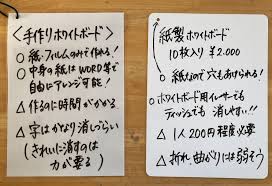 <手作りホワイトボード>
○紙・フィルムのみで作れる!
○中身の紙はWORD等で
自由にアレンジ可能!
△作るのに時間がかかる
△字はかなり消しづらい
(きれいに消すのは
力が要る)
紙製ホワイトボード
10枚入り ¥2.000
○紙なので穴もあけられる!
○ホワイトボード用イレーザーでも
ティッシュでも 消しやすい!!
△1人200円程度必要
△折れ曲がりには弱そう